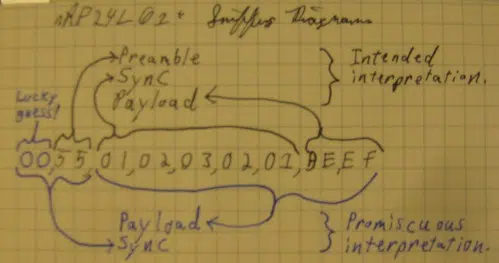 nRF24L01+ Sniffer Diagram
Preamble
Sync
Payload
Intended
interpretation.
Lucky
guess!
00,55,01,02,03,02,01,BE,EF
Payload
Sync
Promiscuous
interpretation.